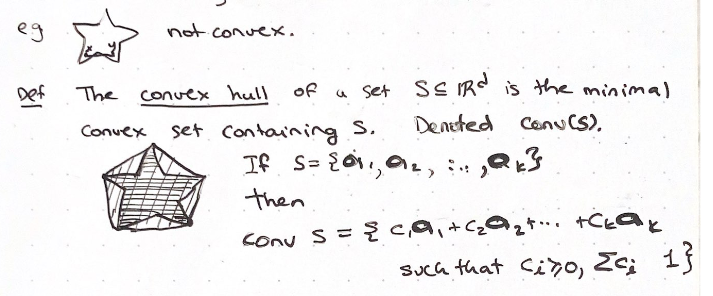 eg not convex.
x y
Def The convex hull of a set S ⊆ ℝᵈ is the minimal
convex set containing S. Denoted conv(S).
If S = {a₁, a₂, ..., aₖ}
then
conv S = { c₁a₁ + c₂a₂ + ... + cₖaₖ
such that cᵢ ≥ 0, Σcᵢ 1}